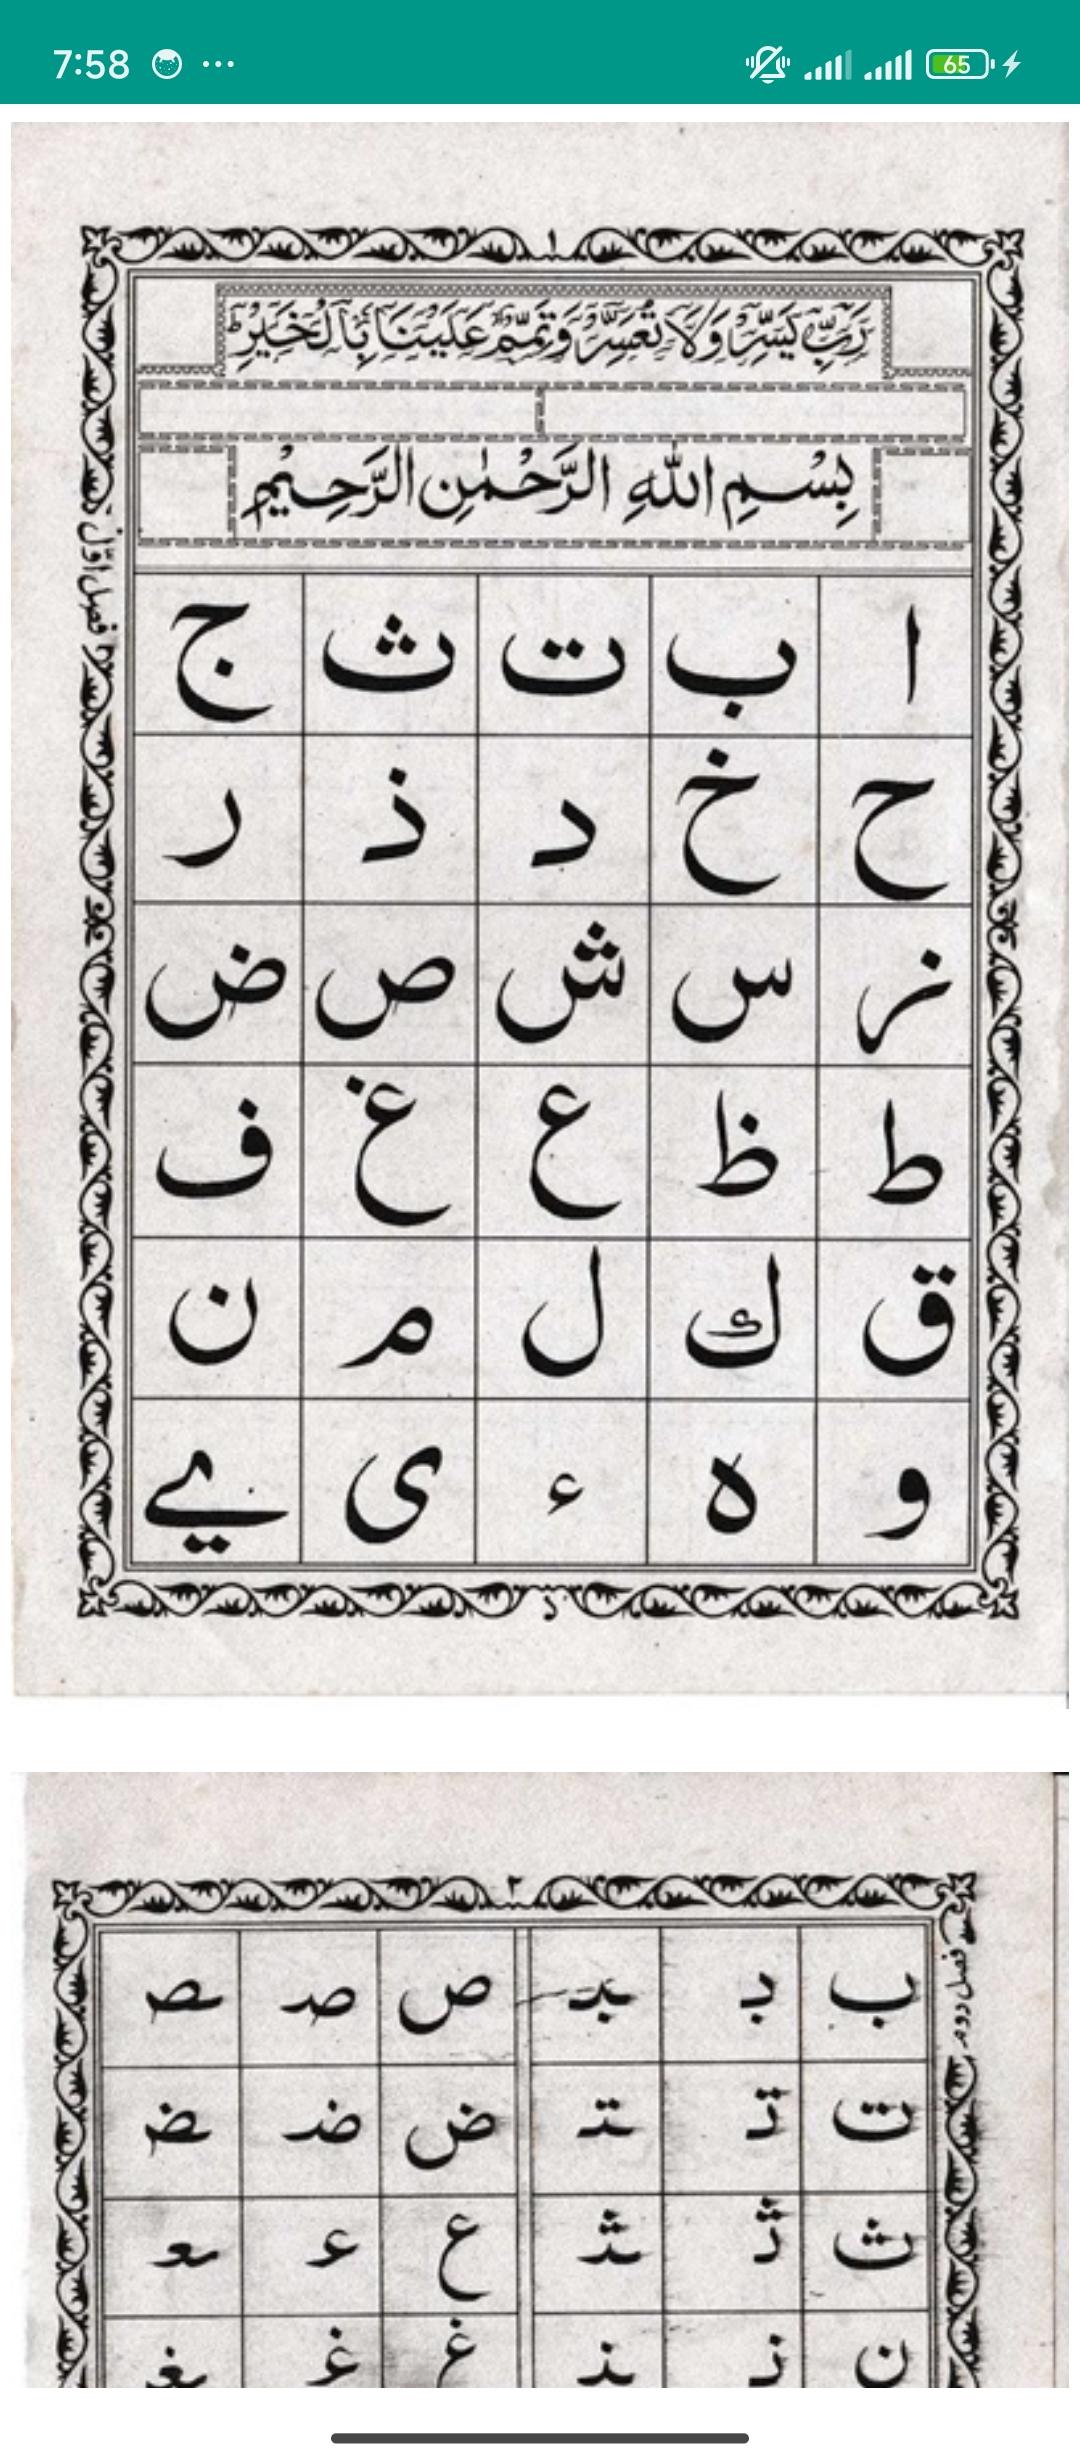 7:58 ...
65
١
رَبِّ يَسِّرْ وَلَا تُعَسِّرْ وَتَمِّمْ عَلَيْنَا بِالْخَيْرِ ط
بِسْمِ اللهِ الرَّحْمٰنِ الرَّحِيْمِ
فصل اوّل
ا ب ت ث ج
ح خ د ذ ر
ز س ش ص ض
ط ظ ع غ ف
ق ك ل م ن
و ه ء ى يے
٢
فصل دوم
ب بـ ـبـ ص صـ ـصـ
ت تـ ـتـ ض ضـ ـضـ
ث ثـ ـثـ ع عـ ـعـ
ن نـ ـنـ غ غـ ـغـ